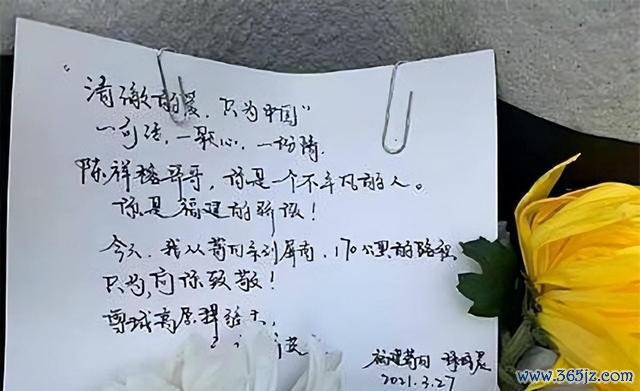 “清澈的爱，只为中国”
一句话，一颗心，一份情，
陈祥榕哥哥，你是一个不平凡的人。
你是福建的骄傲！
今天，我从莆田来到屏南，170公里的路程
只为，向你致敬！
雪域高原
福建莆田
2021.3.27
www.365jz.com